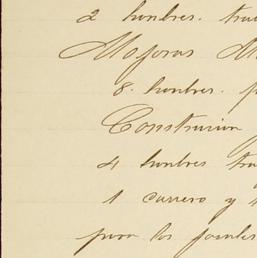 2 hombres. tra
Mayoras M
8. hombres. p
Construcion
4 hombres tra
1 carrero y
para los